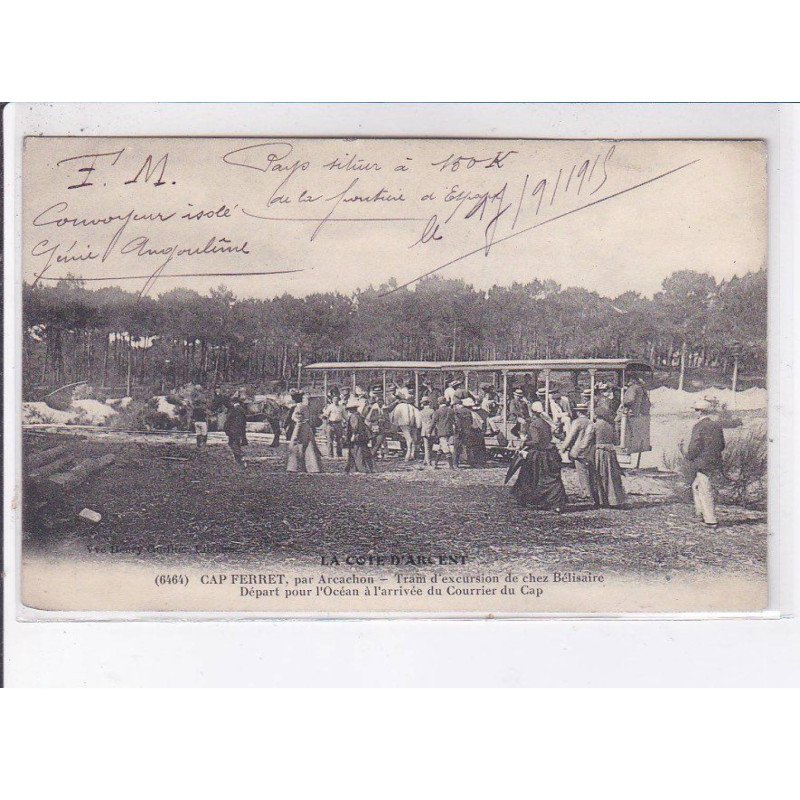 F. M.
Pays situer à 150 K
de la frontière d'Espagne
Convoyeur isolé
le 17/9/1915
Génie Angoulême
LA COTE D'ARGENT
(6464) CAP FERRET, par Arcachon — Tram d'excursion de chez Bélisaire
Départ pour l'Océan à l'arrivée du Courrier du Cap